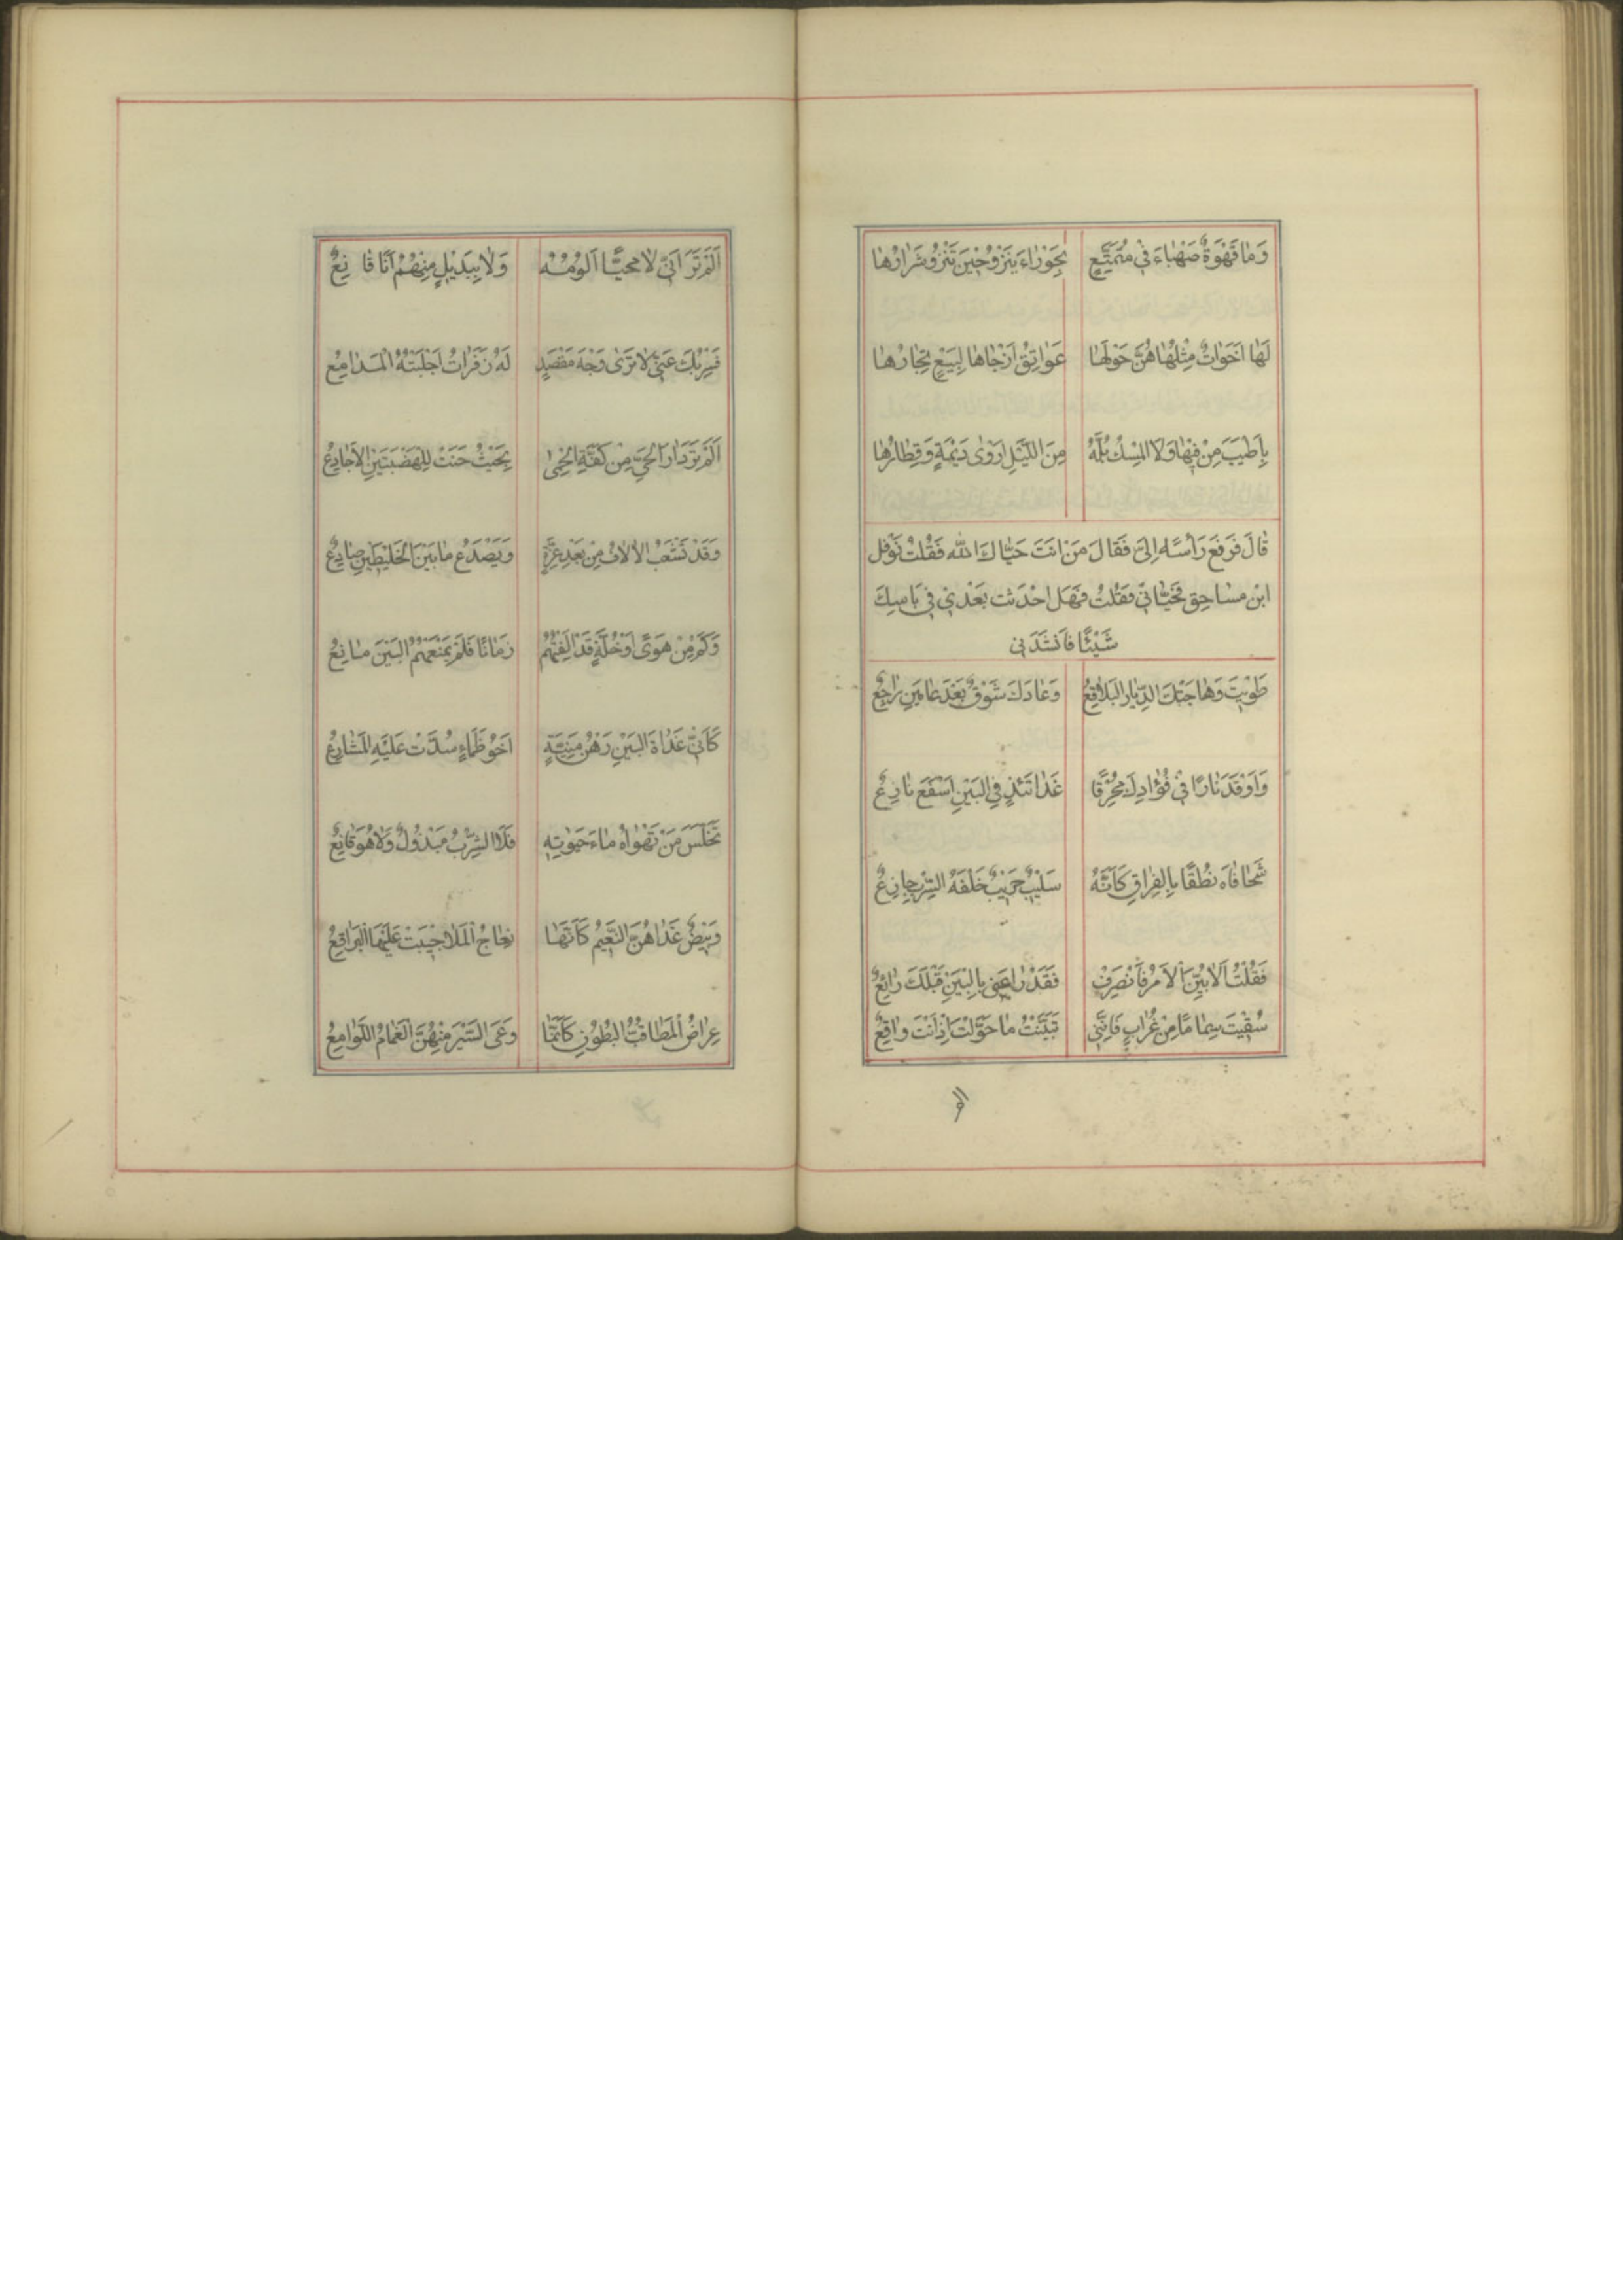 وَمٰا قَهْوَةٌ صَهْبٰاءَ فِی مُمَتِّعٍ بِحَوْرٰاءَ يَنْزُو حٖينَ تَنْزُو شَرٰارُهٰا
لَهٰا اَخَوٰاتٌ مِثْلُهٰا هُنَّ حَوْلَهٰا عَوٰاتِقُ اَرْجٰاهٰا لِبَيْعٍ تِجٰارُهٰا
بِاَطْيَبَ مِنْ فِيهٰا وَلَا الْمِسْكُ بُلَّهُ مِنَ اللَّيْلِ اَرْوٰى دَيْمَةٍ وَقِطٰارُهٰا
قٰالَ فَرَفَعَ رَأْسَهُ اِلَیَّ فَقٰالَ مَنْ انَتَ حَيّٰاكَ اللّٰه فَقُلْتُ نَوْفِل
ابْن مسٰاحِق فَحَيّٰانِی فَقُلْتُ فَهَل احْدَثت بَعْدِی فِی يَاسِكَ
شَيْئًا فَاَنْشَدَنی
طَوِيْتَ وَهٰاجَتْكَ الدِّيٰارُ الْبَلٰاقِعُ وَعٰادَكَ شَوْقٌ بَعْدَ عٰامَيْنِ رٰاجِعٌ
وَاَوْقَدَ نٰارًا فِی فُؤٰادِكَ مُحْرِقًا غَدٰاتَئِذٍ فِی الْبَيْنِ اَسْفَعُ نٰازِعٌ
شَحٰا فٰاهُ نُطْقًا بِالْفِرٰاقِ كَاَنَّهُ سَلٖيْبٌ حَرٖيْبٌ خَلْفَهُ السِّرْبُ جٰازِعٌ
فَقُلْتُ اَلٰا بَيِّنِ الْاَمْرَ فَانْصَرِفْ فَقَدْ رٰاعَنِی بِالْبَيْنِ قَبْلَكَ رٰائِعٌ
سُقِيْتَ سِمٰامًا مِنْ غُرٰابٍ فَاِنَّنِی تَبَيَّنْتُ مٰا حَوَّلْتَ اِذْ اَنْتَ وٰاقِعٌ
الم
اَلَمْ تَرَ اَنّی لٰا مُحِبًّا اَلُوْمُهُ وَلٰا بِبَدٖيْلٍ مِنْهُمُ اَنَا قٰانِعٌ
لَهُ زَفَرٰاتٌ اَجْلَبَتْهُ الْمَدٰامِعُ
اَلَمْ تَرَ دٰارَ الْحَیِّ مِنْ كَفَّةِ الْحِمٰى بِحَيْثُ حَنَتْ لِلْهَضْبَتَيْنِ الْاَجٰادِعُ
وَقَدْ تَشْعَبُ الْاُلّٰافُ مِنْ بَعْدِ عِزَّةٍ وَيَصْدَعُ مٰا بَيْنَ الْخَلٖيْطَيْنِ صٰادِعٌ
وَكَمْ مِنْ هَوًى اَوْ خُلَّةٍ قَدْ اَلِفْتُهُمْ زَمٰانًا فَلَمْ يَمْنَعْهُمُ الْبَيْنَ مٰانِعُ
كَاَنّی غَدٰاةَ الْبَيْنِ رَهْنُ مَنِيَّةٍ اَخُو ظَمَاءٍ سُدَّتْ عَلَيْهِ الْمَشٰارِعُ
تَخَلَّسَ مَنْ تَهْوٰاهُ مٰاءَ حَيٰوتِهٖ فَلَا الشِّرْبُ مَبْذُولٌ وَلٰا هُوَ قٰانِعٌ
وَبِيْضٌ غَذٰاهُنَّ النَّعٖيمُ كَاَنَّهٰا نِعٰاجُ الْمَلٰا جٖيْبَتْ عَلَيْهَا الْبَرٰاقِعُ
عِرٰاضُ الْمَطٰا قُبُّ الْبُطُوْنِ كَاَنَّمٰا وَعَى السَّيْرَ مِنْهُنَّ الْغَمٰامُ اللَّوٰامِعُ